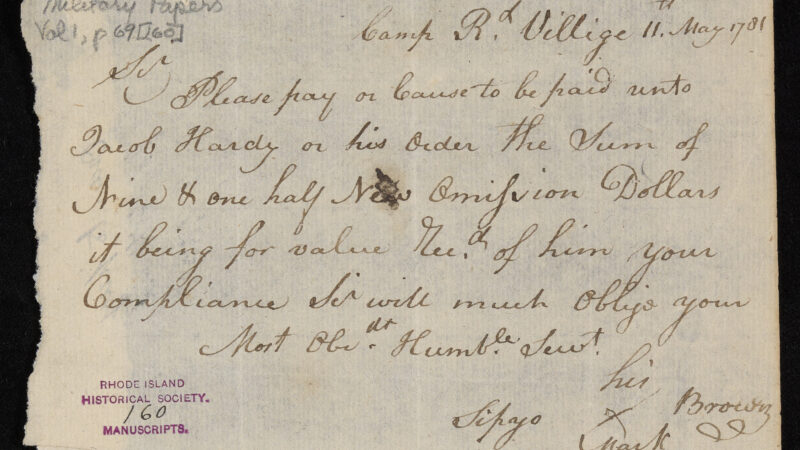 Military Papers
Vol 1, p 69 [160]
Camp R.d Villige 11.th May 1781
Sir
Please pay or Cause to be paid unto
Jacob Hardy or his order the Sum of
Nine & one half New Omission Dollars
it being for value Rec.d of him your
Compliance Sir will much Oblige your
Most Obe.dt Humb.le Serv.t
his
Sipyo x Brown
Mark
RHODE ISLAND
HISTORICAL SOCIETY.
160
MANUSCRIPTS.